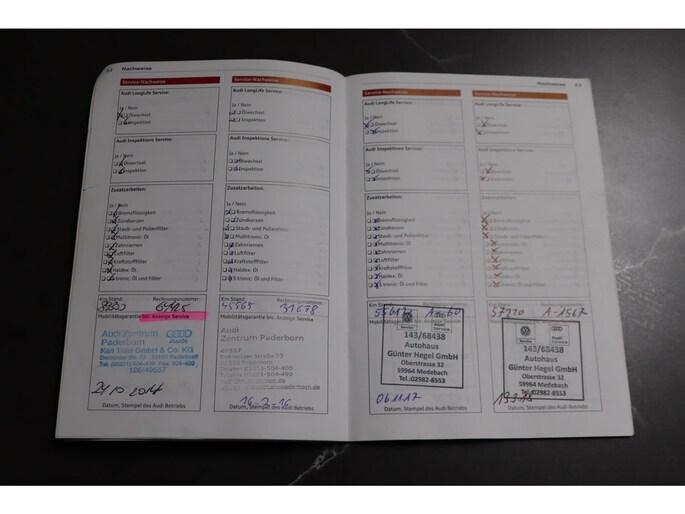 Nachweise
Service-Nachweise
Audi LongLife Service:
Ja / Nein
Ölwechsel
Inspektion
Audi Inspektions Service:
Ja / Nein
Ölwechsel
Inspektion
Zusatzarbeiten:
Ja / Nein
Bremsflüssigkeit
Zündkerzen
Staub- und Pollenfilter
Multitronic: Öl
Zahnriemen
Luftfilter
Kraftstofffilter
Haldex: Öl
S tronic: Öl und Filter
Km Stand:
Rechnungsnummer:
Mobilitätsgarantie bis: Anzeige Service
Audi Zentrum
Paderborn
Audi
24.10 2014
Datum, Stempel des Audi Betriebs
Service-Nachweise
Audi LongLife Service:
Ja / Nein
Ölwechsel
Inspektion
Audi Inspektions Service:
Ja / Nein
Ölwechsel
Inspektion
Zusatzarbeiten:
Ja / Nein
Bremsflüssigkeit
Zündkerzen
Staub- und Pollenfilter
Multitronic: Öl
Zahnriemen
Luftfilter
Kraftstofffilter
Haldex: Öl
S tronic: Öl und Filter
Km Stand:
Rechnungsnummer:
45565 31678
Mobilitätsgarantie bis: Anzeige Service
Audi
Zentrum Paderborn
16-2-16
Datum, Stempel des Audi Betriebs
Nachweise
Service-Nachweise
Audi LongLife Service:
Ja / Nein
Ölwechsel
Inspektion
Audi Inspektions Service:
Ja / Nein
Ölwechsel
Inspektion
Zusatzarbeiten:
Ja / Nein
Bremsflüssigkeit
Zündkerzen
Staub- und Pollenfilter
Multitronic: Öl
Zahnriemen
Luftfilter
Kraftstofffilter
Haldex: Öl
S tronic: Öl und Filter
143/68438
Autohaus
Günter Hegel GmbH
Oberstrasse 32
59964 Medebach
Tel.:02982-8553
06.11.17
Datum, Stempel des Audi Betriebs
Service-Nachweise
Audi LongLife Service:
Ja / Nein
Ölwechsel
Inspektion
Audi Inspektions Service:
Ja / Nein
Ölwechsel
Inspektion
Zusatzarbeiten:
Ja / Nein
Bremsflüssigkeit
Zündkerzen
Staub- und Pollenfilter
Multitronic: Öl
Zahnriemen
Luftfilter
Kraftstofffilter
Haldex: Öl
S tronic: Öl und Filter
57220 A-1567
143/68438
Autohaus
Günter Hegel GmbH
Oberstrasse 32
59964 Medebach
Tel.:02982-8553
Datum, Stempel des Audi Betriebs